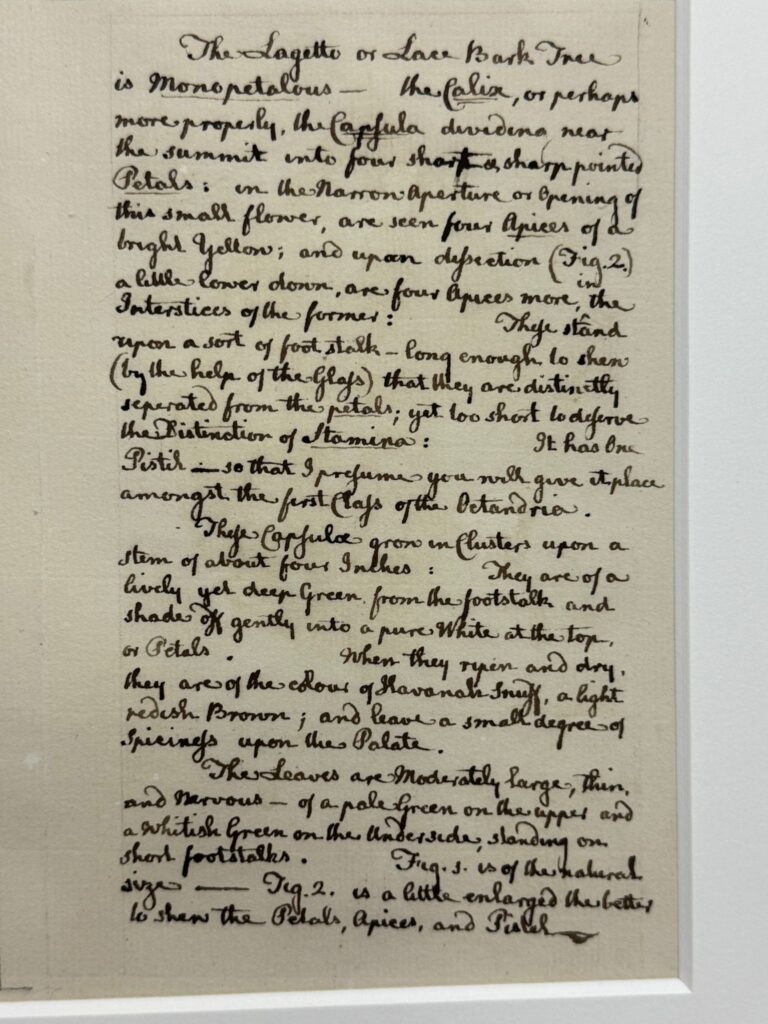 The Lagetto or Lace Bark Tree
is Monopetalous — the Calix, or perhaps
more properly, the Capſula dividing near
the summit into four sharp & sharp pointed
Petals: in the Narron Aperture or Opening of
this small flower, are seen four Apices of a
bright Yellow; and upon diſsection (Fig. 2.)
a little lower down, are four Apices more, in the
Interstices of the former: Theſe stand
upon a sort of foot stalk — long enough to shew
(by the help of the Glaſs) that they are distinctly
seperated from the petals; yet too short to deserve
the Distinction of Stamina: It has One
Pistil — so that I presume you will give it place
amongst the first Claſs of the Octandria.
Theſe Capſulæ grow in Clusters upon a
stem of about four Inches: They are of a
lively yet deep Green from the footstalk and
shade off gently into a pure White at the top,
or Petals. When they ripen and dry,
they are of the colour of Havanah Snuff, a light
redish Brown; and leave a small degree of
Spicineſs upon the Palate.
The Leaves are Moderately large, thin,
and Nervous — of a pale Green on the upper and
a Whitish Green on the Underside, standing on
short footstalks. Fig. 1. is of the natural
size — Fig. 2. is a little enlarged the better
to shew the Petals, Apices, and Pistil —